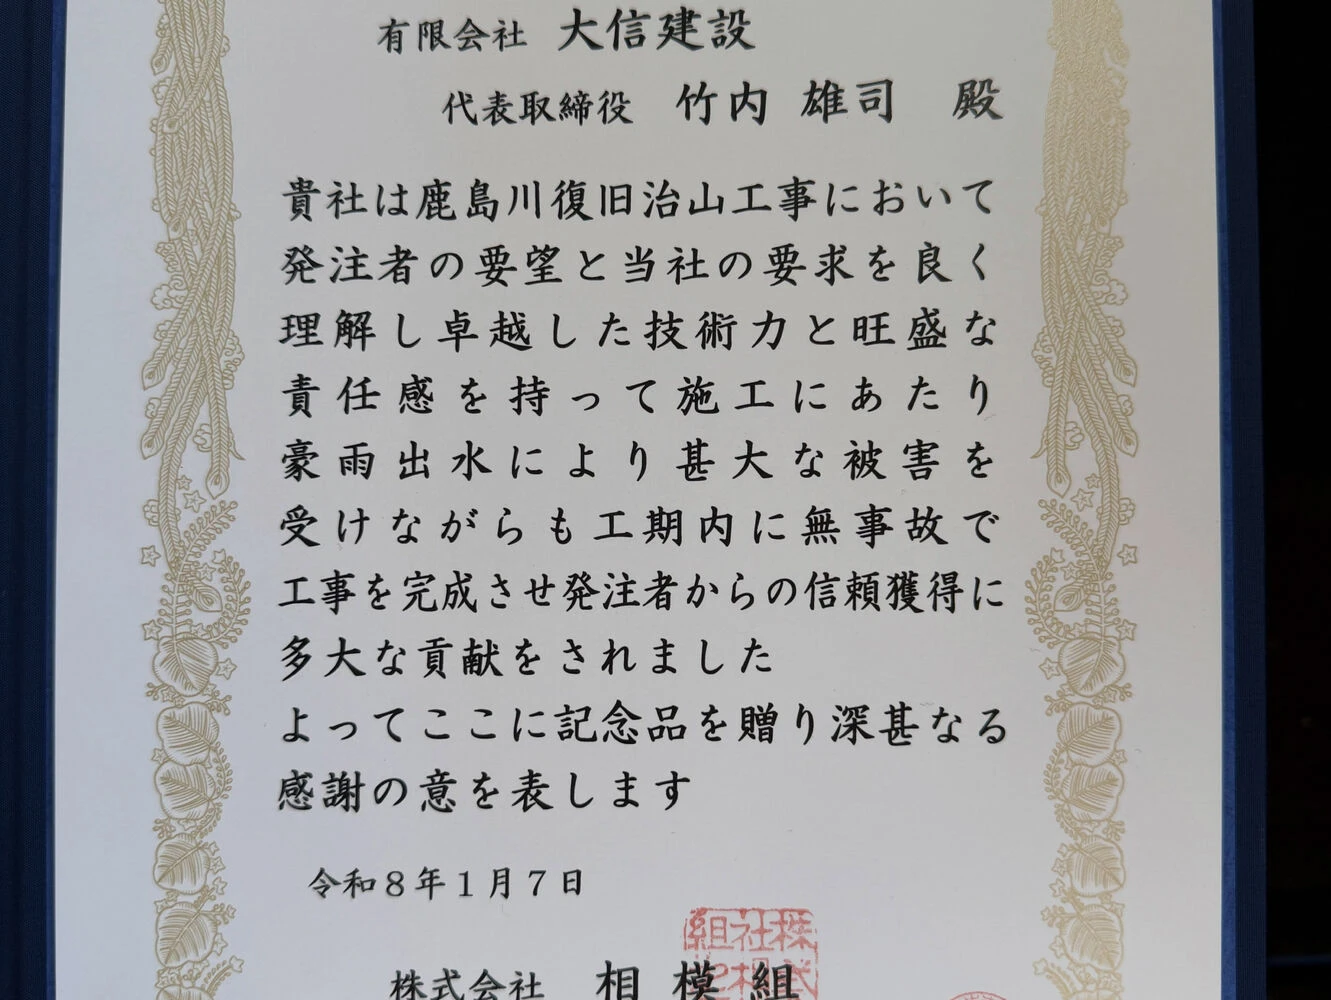 有限会社 大信建設
代表取締役 竹内 雄司 殿
貴社は鹿島川復旧治山工事において
発注者の要望と当社の要求を良く
理解し卓越した技術力と旺盛な
責任感を持って施工にあたり
豪雨出水により甚大な被害を
受けながらも工期内に無事故で
工事を完成させ発注者からの信頼獲得に
多大な貢献をされました
よってここに記念品を贈り深甚なる
感謝の意を表します
令和８年１月７日
株式会社 相模組